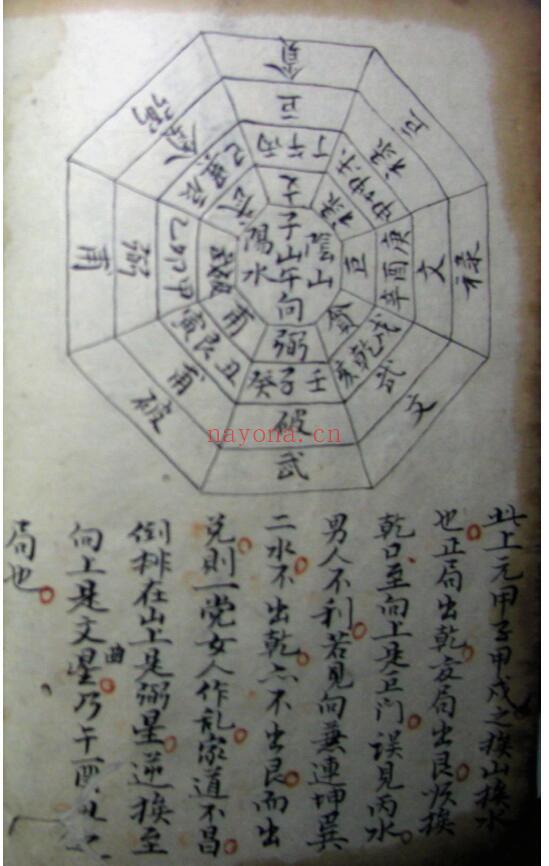 貪
巨
丁午丙
文
巨
祿
申坤未
祿
祿
文
庚酉辛
巨
文
武
戌乾亥
貪
武
破
壬子癸
弼
破
輔
丑艮寅
甫
甫
弼
甲卯乙
破
弼
貪
辰巽巳
武
子山午向
陰山
陽水
nayona.cn
此上元甲子甲戌之挨山挨水
也正局出乾变局出艮順挨
乾口至向上是巨门誤見丙水
男人不利若見向兼連坤巽
二水不出乾亦不出艮而出
兑則一党女人作乱家道不昌
倒排在山上是弼星逆挨至
向上是文曲星乃午酉丑
局也